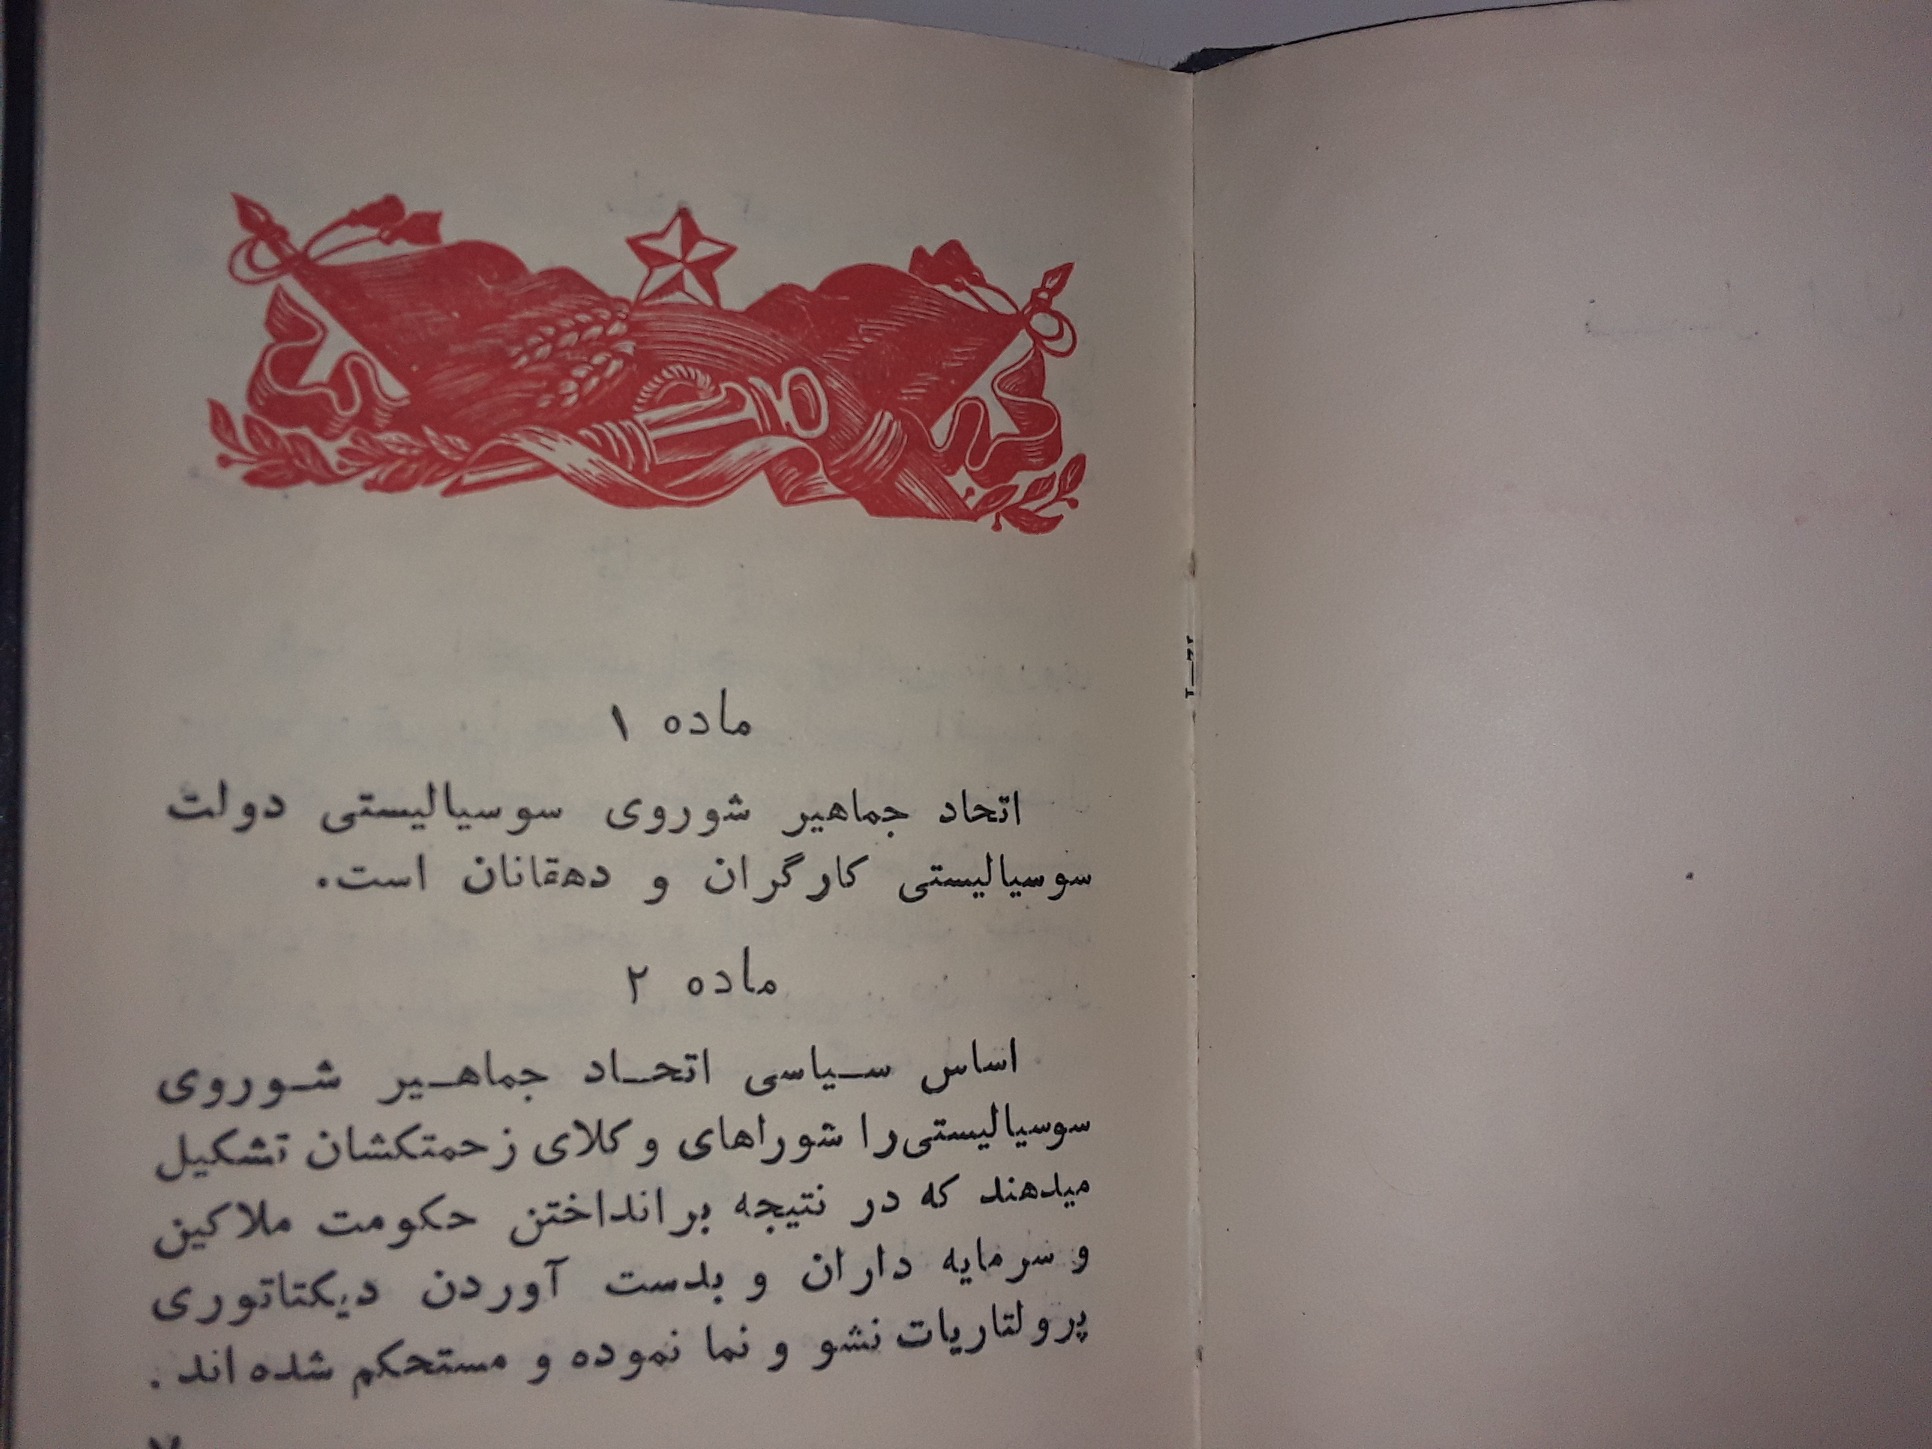 ماده ۱
اتحاد جماهیر شوروی سوسیالیستی دولت
سوسیالیستی کارگران و دهقانان است.
ماده ۲
اساس سیاسی اتحاد جماهیر شوروی
سوسیالیستی را شوراهای وکلای زحمتکشان تشکیل
میدهند که در نتیجه برانداختن حکومت ملاکین
و سرمایه داران و بدست آوردن دیکتاتوری
پرولتاریات نشو و نما نموده و مستحکم شده اند.